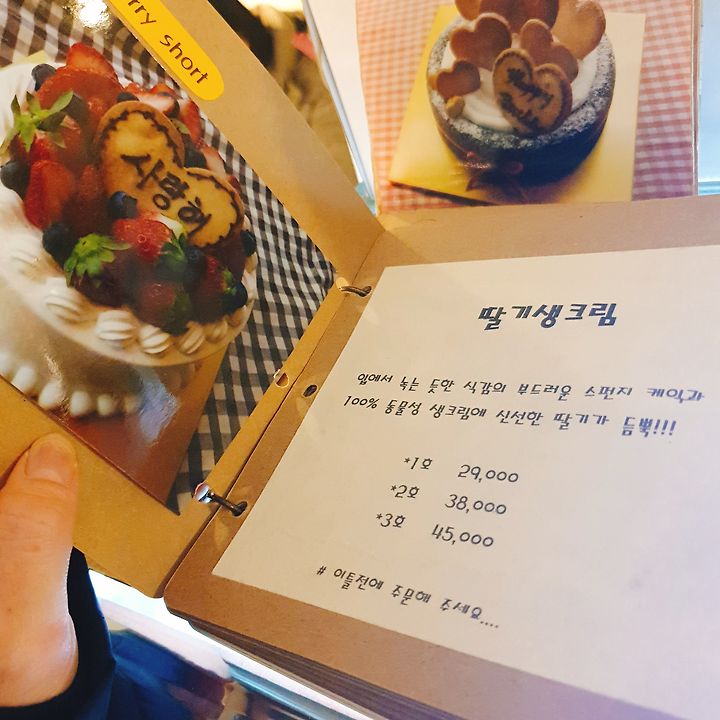 rry short
사랑해
Happy
딸기생크림
입에서 녹는 듯한 식감의 부드러운 스펀지 케익과
100% 동물성 생크림에 신선한 딸기가 듬뿍!!!
*1호 29,000
*2호 38,000
*3호 45,000
# 이틀전에 주문해 주세요....